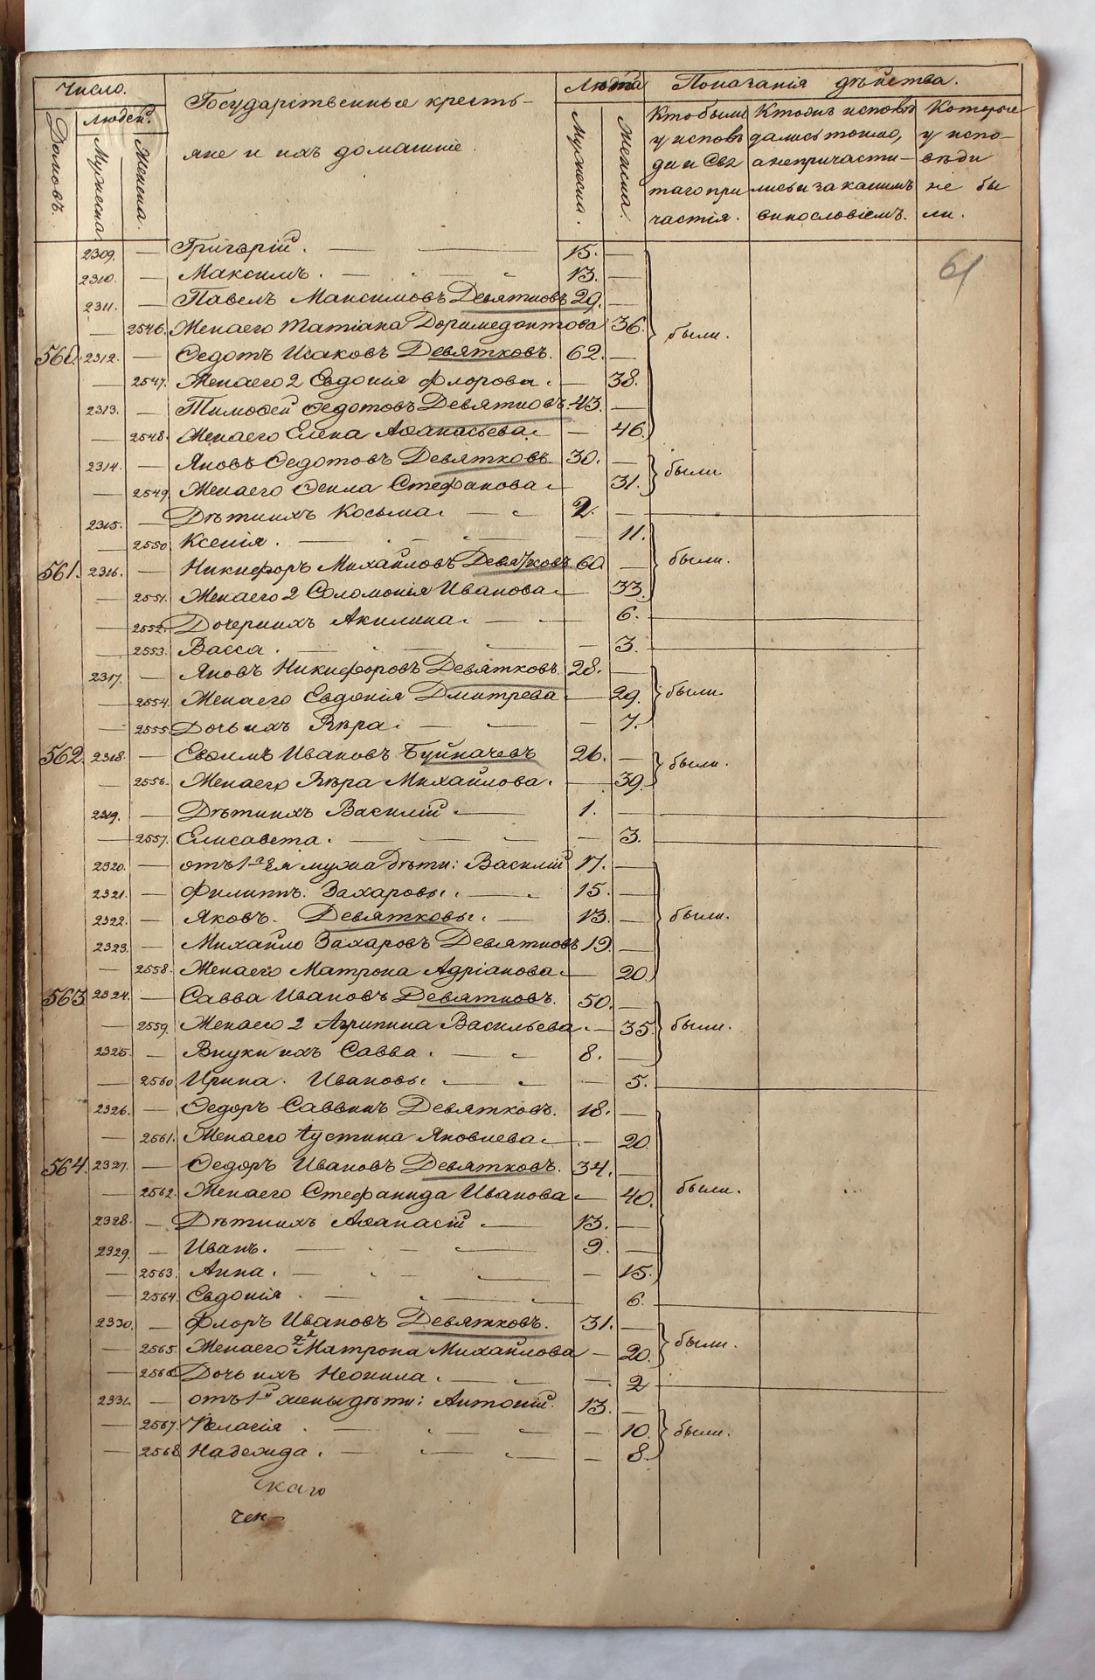 Число.
Людей.
Домовъ.
Мужеска.
Женска.
Государственные кресть-
яне и ихъ домашніе.
Лѣта
Мужеска.
Женска.
Показанія дѣйства.
Кто были
у исповѣ
ди и Свя
таго при
частія.
Кто онъ исповѣ
дались токмо,
а не причасти-
лись и за какимъ
винословіемъ.
Которые
у испо-
вѣди
не бы
ли.
61
2309. — Григорій. — 15. —
2310. — Максимъ. — 13. —
2311. — Павелъ Максимовъ Девятковъ 29. —
— 2546. Жена его Татіана Доримедонтова 36. были.
560. 2312. — Ѳедотъ Исаковъ Девятковъ. 62. —
— 2547. Жена его 2 Евдокія Флорова. — 38.
2313. — Тимоѳей Ѳедотовъ Девятковъ. 43. —
— 2548. Жена его Елена Аѳанасьева. — 46.
2314. — Яковъ Ѳедотовъ Девятковъ. 30. — были
— 2549. Жена его Ѳекла Стефанова — 31.
2315. — Дѣти ихъ Косьма. — 2. —
— 2550 Ксенія. — 11.
561. 2316. — Никифоръ Михайловъ Девятковъ 60 — были.
— 2551. Жена его 2 Соломонія Иванова — 33.
— 2552. Дочери ихъ Акилина. — 6.
— 2553. Васса. — 3.
2317. — Яковъ Никифоровъ Девятковъ. 28. —
— 2554. Жена его Евдокія Дмитрева — 29. были.
— 2555 Дочь ихъ Вѣра. — 7.
562. 2318. — Евѳимъ Ивановъ Буйначевъ 26. — были.
— 2556. Жена его Вѣра Михайлова. — 39.
2319. — Дѣти ихъ Василій — 1. —
— 2557. Елисавета. — 3.
2320. — отъ 1го ея мужа дѣти: Василій 17. —
2321. — Филиппъ. Захаровы. — 15. —
2322. — Яковъ. Девятковы. — 13. — были.
2323. — Михайло Захаровъ Девятковъ 19. —
— 2558. Жена его Матрона Адріанова — 20.
563 2324. — Савва Ивановъ Девятковъ. 50. —
— 2559. Жена его 2 Агрипина Васильева. — 35. были.
2325. — Внуки ихъ Савва. — 8. —
— 2560 Ирина. Ивановы — 5.
2326. — Ѳедоръ Саввинъ Девятковъ. 18. —
— 2561. Жена его Іустина Яковлева — 20
564. 2327. — Ѳедоръ Ивановъ Девятковъ. 34. —
— 2562. Жена его Стефанида Иванова — 40. были.
2328. — Дѣти ихъ Аѳанасій — 13. —
2329. — Иванъ. — 9. —
— 2563. Анна. — 15.
— 2564. Евдокія. — 6.
2330. — Флоръ Ивановъ Девятковъ. 31. — были.
— 2565. Жена его 2я Матрона Михайлова — 20.
— 2566 Дочь ихъ Неонила. — 2
2331. — отъ 1й жены дѣти: Антоній. 13. —
— 2567. Пелагія. — 10. были.
— 2568 Надежда. — 8.
скаго
чен